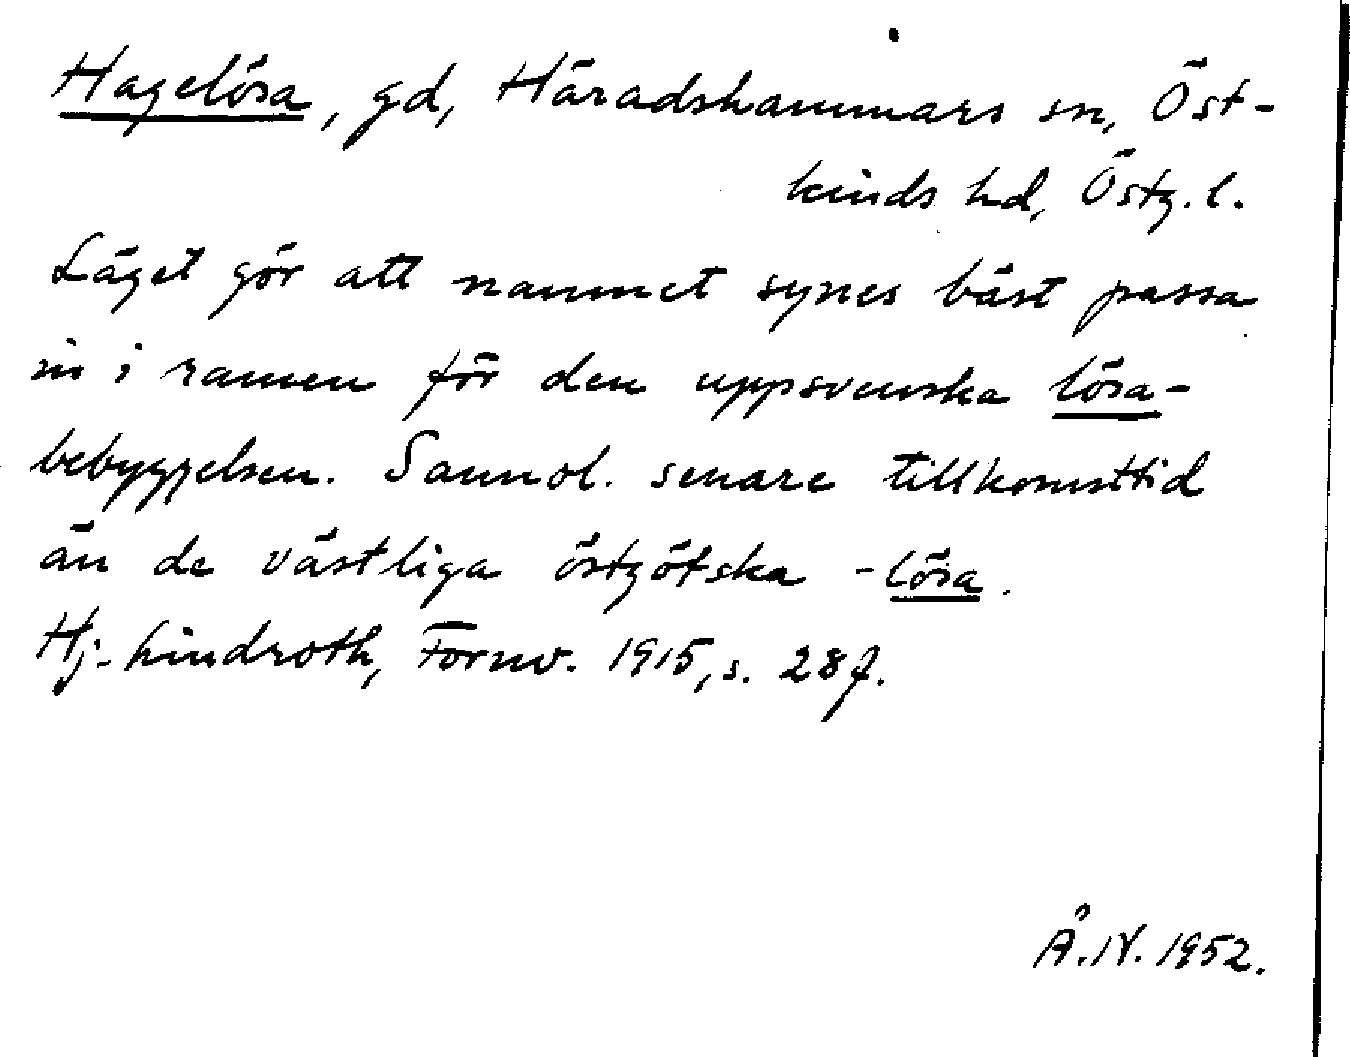 Hagelösa, gd, Häradshammars sn, Öst-
kinds hd, Östg. l.
Läget gör att namnet synes bäst passa
in i ramen för den uppsvenska lösa-
bebyggelsen. Sannol. senare tillkomsttid
än de västliga östgötska -lösa.
Hj. Lindroth, Fornv. 1915, s. 28 f.
Å. IV. 1952.